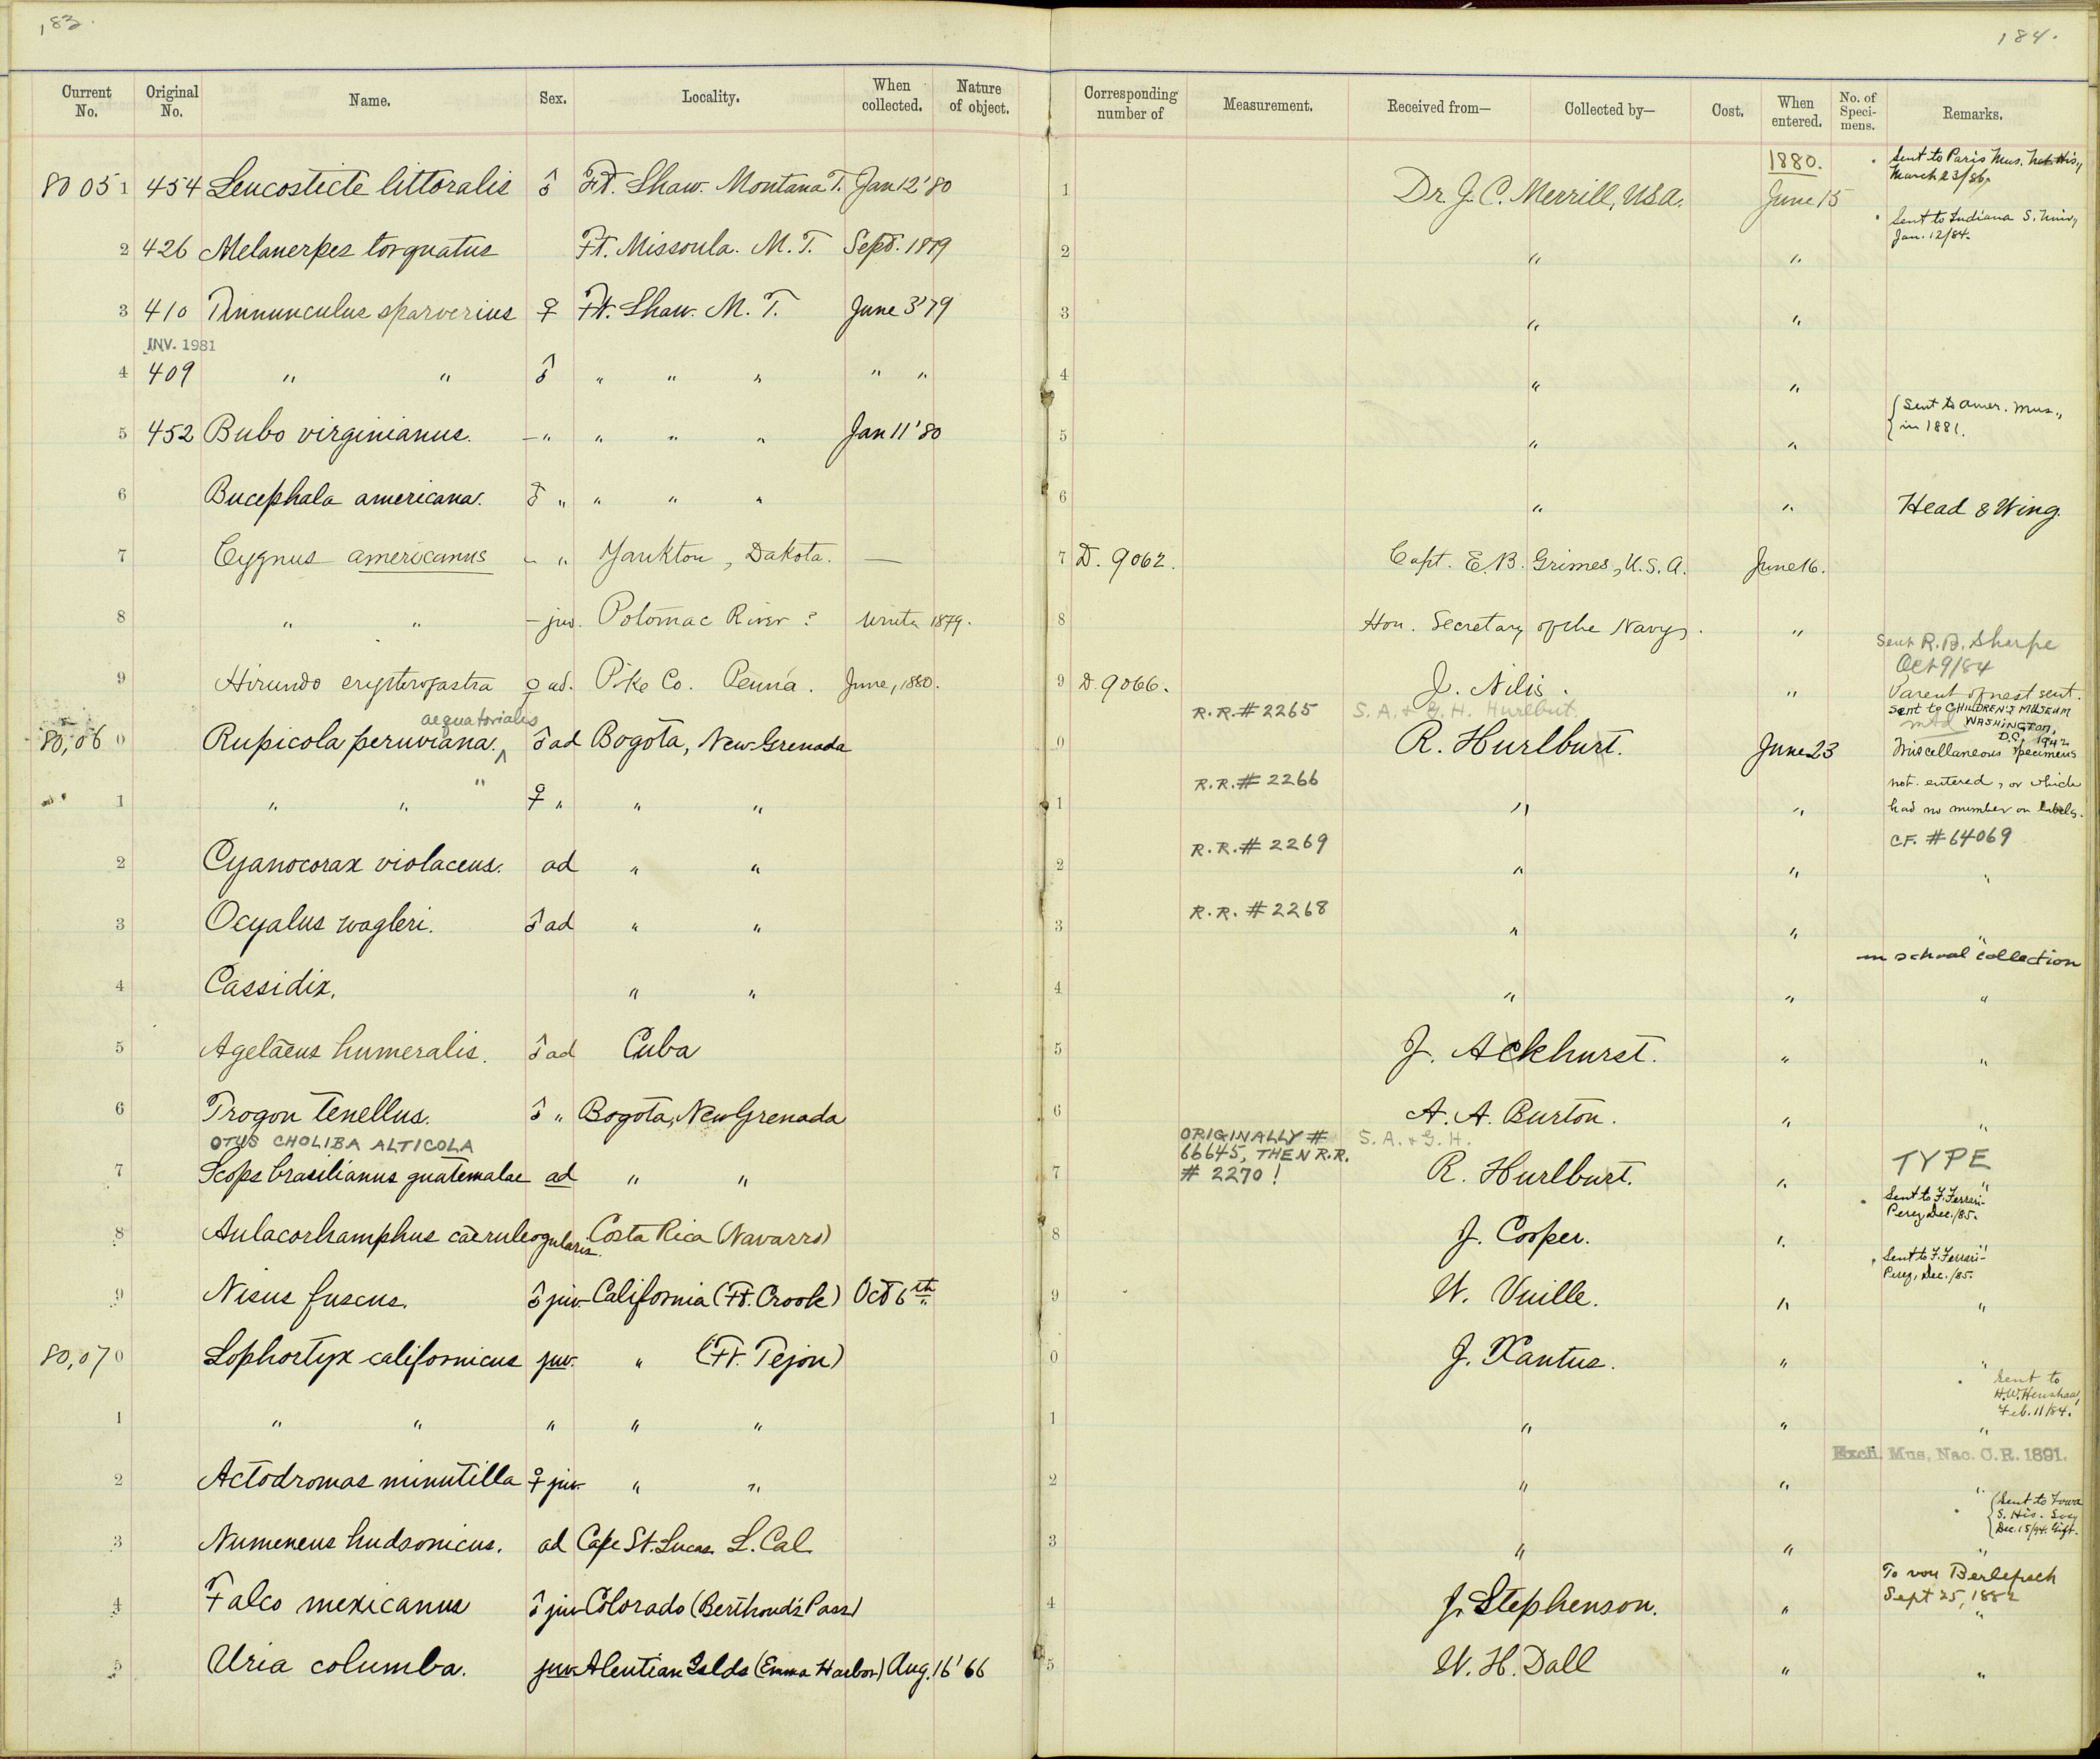 183.
184.
Current No. Original No. Name. Sex. Locality. When collected. Nature of object. Corresponding number of Measurement. Received from— Collected by— Cost. When entered. No. of Speci- mens. Remarks.
80 05 1 454 Leucosticte littoralis ♂ Ft. Shaw. Montana T. Jan 12 '80 1 Dr. J. C. Merrill, USA. 1880. June 15 Sent to Paris Mus. Nat. His., March 23/86.
2 426 Melanerpes torquatus Ft. Missoula. M. T. Sept. 1879 2 " " Sent to Indiana S. Univ., Jan. 12/84.
3 410 Tinnunculus sparverius ♀ Ft. Shaw. M. T. June 3 '79 3 " "
INV. 1981
4 409 " " ♂ " " " " " 4 " "
5 452 Bubo virginianus. - " " " " Jan 11 '80 5 " " { Sent to Amer. Mus., in 1881.
6 Bucephala americana. ♂ " " " " 6 " " Head & Wing.
7 Cygnus americanus - " Yankton, Dakota. — 7 D. 9062. Capt. E. B. Grimes, U.S.A. June 16.
8 " " - juv. Potomac River ? Winter 1879. 8 Hon. Secretary of the Navy. "
Sent R. B. Sharpe Oct 9/84
9 Hirundo erythrogastra ♀ ad. Pike Co. Penna. June, 1880. 9 D. 9066. J. Nilis. " Parent of nest sent.
aequatorialis R.R. # 2265 S. A. & G. H. Hurlbut. Sent to CHILDREN'S MUSEUM WASHINGTON, D.C., 1942
80,06 0 Rupicola peruviana. ^ ♂ ad Bogota, New Grenada 0 R. Hurlburt. June 23 Miscellaneous specimens
" R.R. # 2266 not entered, or which
1 " " ♀ " " " 1 " " had no number on labels.
R.R. # 2269 CF. # 64069
2 Cyanocorax violaceus. ad " " 2 " " "
R.R. # 2268
3 Ocyalus wagleri. ♂ ad " " 3 " " "
in school collection
4 Cassidix. " " 4 " " "
5 Agelaeus humeralis. ♂ ad Cuba 5 J. Ackhurst. " "
6 Trogon tenellus. ♂ " Bogota, New Grenada 6 A. A. Burton. " "
OTUS CHOLIBA ALTICOLA ORIGINALLY # 66645, THEN R.R. # 2270 ! S. A. & G. H. TYPE
7 Scops brasilianus guatemalae ad " " 7 R. Hurlburt. " "
8 Aulacorhamphus caeruleogularis. Costa Rica (Navarro) 8 J. Cooper. " Sent to F. Ferrari- Perez, Dec./85. "
9 Nisus fuscus. ♂ juv. California (Ft. Crook) Oct 6th 9 W. Vuille. " Sent to F. Ferrari- Perez, Dec./85. "
80,07 0 Lophortyx californicus juv. " (Ft. Tejon) 0 J. Xantus. " "
1 " " " " " 1 " " Sent to H. W. Henshaw, Feb. 11/84. "
Exch. Mus. Nac. C. R. 1891.
2 Actodromas minutilla ♀ juv. " " 2 " " "
3 Numeneus hudsonicus. ad Cape St. Lucas L. Cal. 3 " " { Sent to Iowa S. His. Socy Dec. 15/94. Gift. "
4 Falco mexicanus ♂ juv Colorado (Berthoud's Pass) 4 J. Stephenson. " To von Berlepsch Sept 25, 1882 "
5 Uria columba. juv. Aleutian Islds (Emma Harbor) Aug. 16 '66 5 W. H. Dall " "